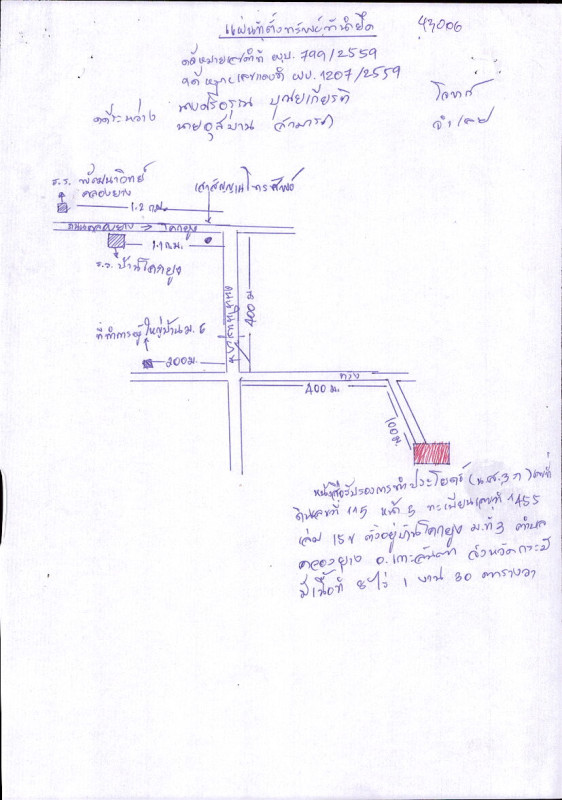 แผนที่ตั้งทรัพย์ที่นำยึด
43006
คดีหมายเลขดำที่ ผบ. 799/2559
คดีหมายเลขแดงที่ ผบ. 1207/2559
คดีระหว่าง
นางศรีอรุณ บุณยเกียรติ โจทก์
นาย สามารถ จำเลย
ร.ร. พัฒนาวิทย์
คลองยาง
เสาสัญญาณโทรศัพท์
1.2 กม.
ถนนคลองยาง → โคกยูง
1.1 กม.
ร.ร. บ้านโคกยูง
400 ม
ที่ทำการผู้ใหญ่บ้าน ม. 6
200 ม.
400 ม.
100 ม.
หนังสือรับรองการทำประโยชน์ (น.ส. 3 ก) เลขที่
ดินเลขที่ 115 หน้า 5 ทะเบียนเลขที่ 1455
เล่ม 15 ข ตั้งอยู่บ้านโคกยูง ม.ที่ 3 ตำบล
คลองยาง อ.เกาะลันตา จังหวัดกระบี่
มีเนื้อที่ 8 ไร่ 1 งาน 30 ตารางวา